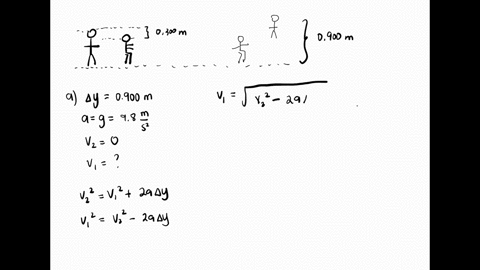 0.300 m
0.900 m
a) Δy = 0.900 m
a = g = 9.8 m/s²
V₂ = 0
V₁ = ?
V₂² = V₁² + 2aΔy
V₁² = V₂² - 2aΔy
V₁ = √V₂² - 2a